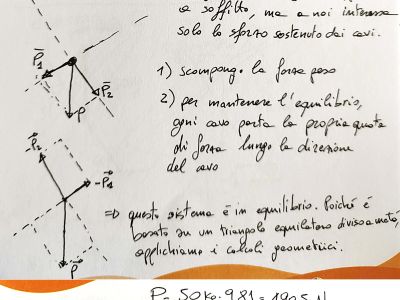 a soffitto, ma a noi interessa
solo lo sforzo sostenuto dai cavi.
P₁
P₂
P
1) scompongo la forza peso
2) per mantenere l'equilibrio,
ogni cavo porta la propria quota
di forza lungo la direzione
del cavo
-P₂
-P₁
P
=> questo sistema è in equilibrio. Poiché è
basato su un triangolo equilatero diviso a metà,
applichiamo i calcoli geometrici.